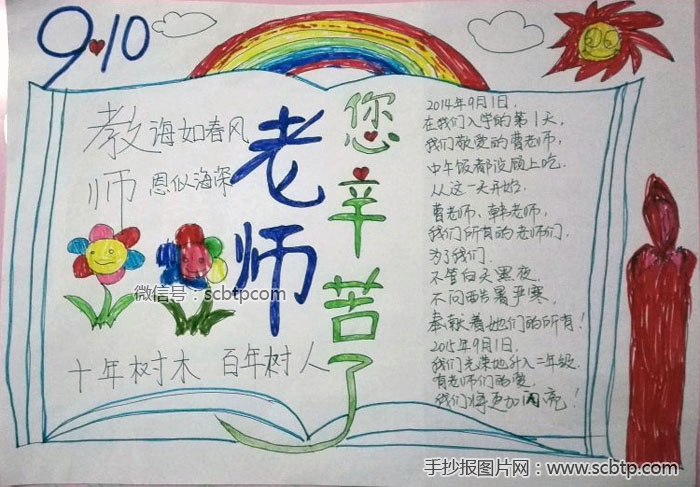 9.10
教诲如春风
师恩似海深
老师
您辛苦了
十年树木 百年树人
2014年9月1日,
在我们入学的第1天,
我们敬爱的曹老师,
中午饭都没顾上吃.
从这一天开始,
曹老师、韩老师,
我们所有的老师们,
为了我们.
不管白天黑夜.
不问酷暑严寒.
奉献着她们的所有!
2015年9月1日.
我们光荣地升入二年级.
有老师们的爱.
我们将更加闪亮!
微信号:scbtpcom
手抄报图片网:www.scbtp.com